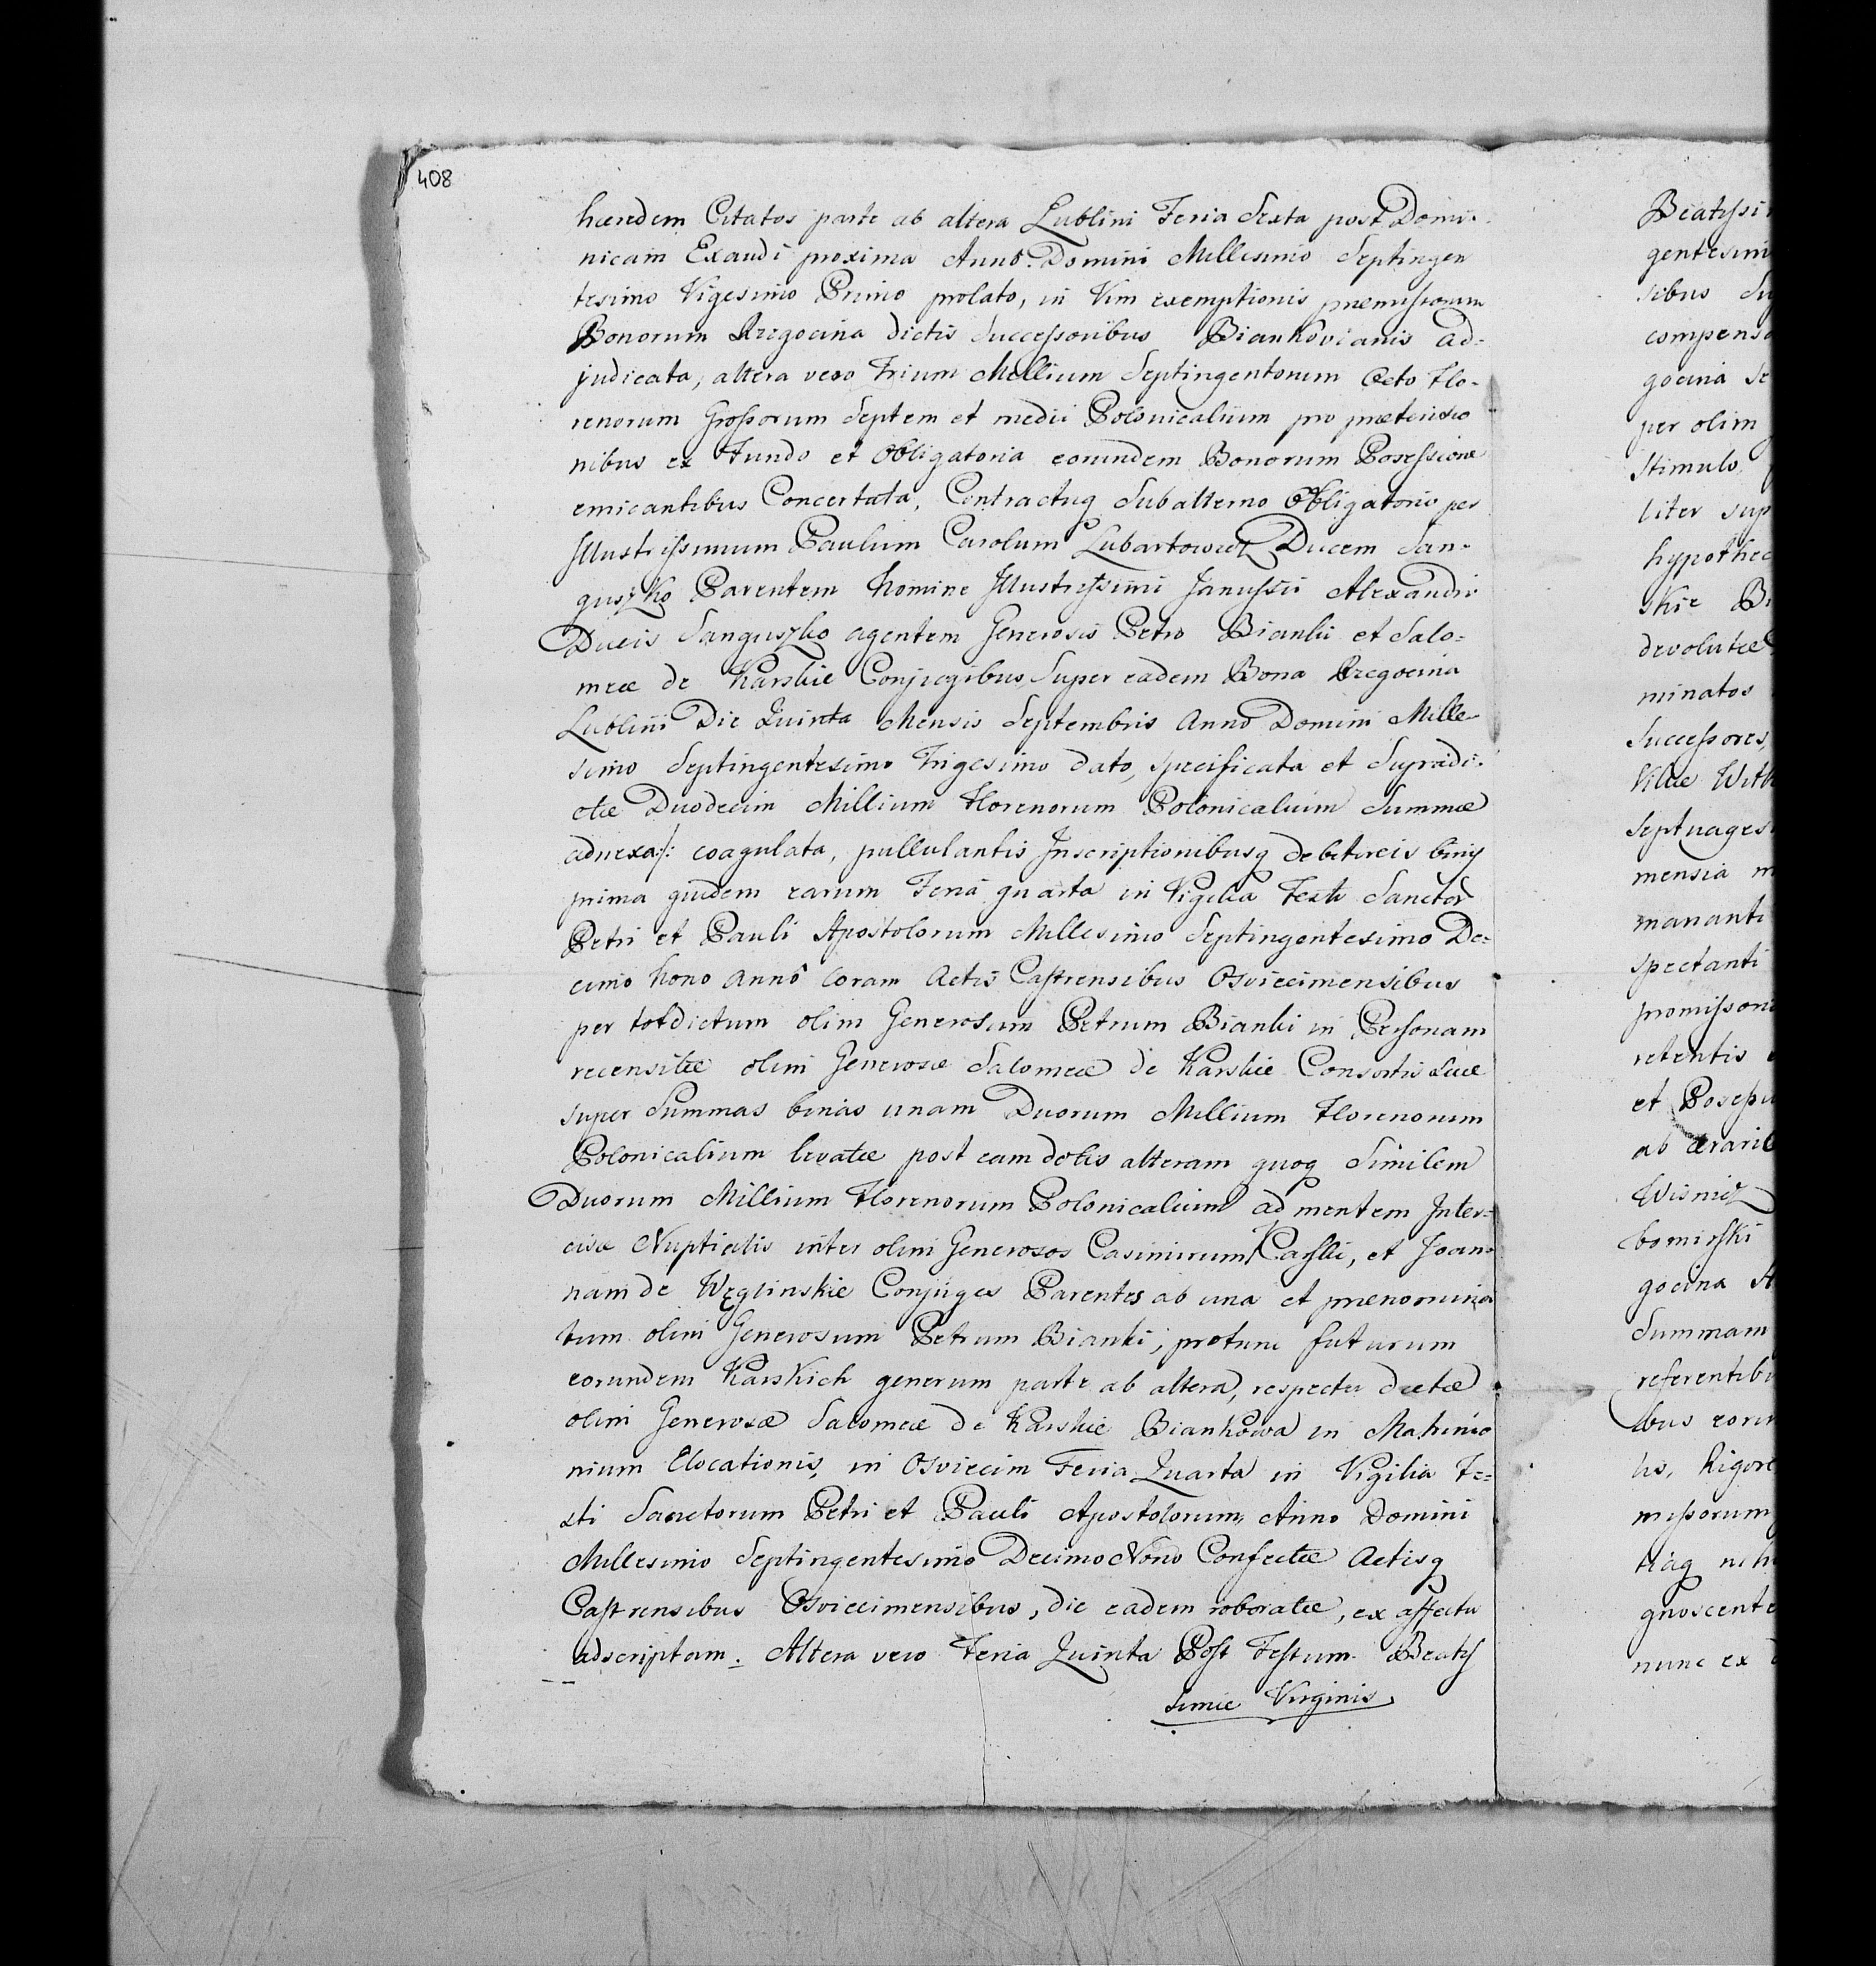 408
hæredem Citatos parte ab altera Lublini Feria Sexta post Domi-
nicam Exaudi proxima Anno Domini Millesimo Septingen
tesimo Vigesimo Primo prolato, in Vim exemptionis præmissorum
Bonorum Przegocina dictis Successoribus Biankovianis ad=
judicata, altera vero Trium Millium Septingentorum Octo Flo-
renorum Grossorum Septem et medii Polonicalium pro prætensio
nibus ex Fundo et Obligatoria eorundem Bonorum Possessione
emicantibus Concertata, Contractuq Subalterno Obligatorio per
Illustrissimum Paulum Carolum Lubartowicz Ducem San-
guszko Parentem Nomine Illustrissimi Janussii Alexandri
Ducis Sanguszko agentem Generosis Petro Bianki et Salo=
meæ de Karskie Conjugibus, Super eadem Bona Przegocina
Lublini Die Quinta Mensis Septembris Anno Domini Mille-
simo Septingentesimo Trigesimo dato, specificata et Supradi-
ctæ Duodecim Millium Florenorum Polonicalium Summæ
adnexa:/: coagulata, pullulantis Inscriptionibusq debitoreis binis
prima quidem earum Feria quarta in Vigilia Festi Sanctor
Petri et Pauli Apostolorum Millesimo Septingentesimo De=
cimo Nono Anno coram Actis Castrensibus Osviecimensibus
per totdictum olim Generosum Petrum Bianki in Personam
recensitæ olim Generosæ Salomeæ de Karskie Consortis Suæ
super Summas binas unam Duorum Millium Florenorum
Polonicalium levatæ post eam dotis alteram quoq Similem
Duorum Millium Florenorum Polonicalium ad mentem Inter=
cisæ Nuptialis inter olim Generosos Casimirum Karski, et Joan-
nam de Węglinskie Conjuges Parentes ab una et prænomina
tum olim Generosum Petrum Bianki, protunc futurum
eorundem Karskich generum parte ab altera, respectu dictæ
olim Generosæ Salomeæ de Karskie Biankowa in Matrimo
nium Elocationis, in Osviecim Feria Quarta in Vigilia Fe=
sti Sanctorum Petri et Pauli Apostolorum, Anno Domini
Millesimo Septingentesimo Decimo Nono Confectæ Actisq
Castrensibus Osviecimensibus, die eadem roboratæ, ex affectu
adscriptam. Altera vero Feria Quinta Post Festum Beatis
simæ Virginis
Beatissi
gentesim
sibus Su
compensa
gocina
per olim
Stimulo
liter sup
hypothec
skie Bi
devolutæ
minatos
Successores,
Villæ With
Septuages
mensia m
mananti
spectanti
promissori
retentis
et Posessi
ab ærarib
Wisnicz
bomirski
gocina
Summam
referentibu
bus eorun
Rigore
missorum
tiaq
gnoscente
nunc ex